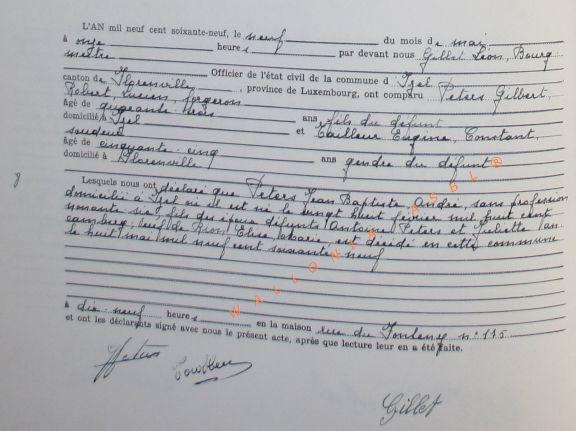 L'AN mil neuf cent soixante-neuf, le neuf du mois de mai,
à onze heures par devant nous Gillet Léon, Bourg
mestre
Officier de l'état civil de la commune d Izel
canton de Florenville, province de Luxembourg, ont comparu Peters Gilbert,
Robert, Lucien, forgeron
âgé de quarante-trois ans fils du défunt
domicilié à Izel et Tailleur Eugène, Constant,
soudeur
âgé de cinquante-cinq ans gendre du défunt
domicilié à Florenville
Lesquels nous ont déclaré que Peters Jean Baptiste, André, sans profession
domicilié à Izel où il est né le vingt huit février mil huit cent
nonante six, fils des époux défunts Antoine Peters et Juliette
veuf de Elise, est décédé en cette commune
le huit mai mil neuf cent soixante neuf
à dix-neuf heures en la maison rue du n° 115
et ont les déclarants signé avec nous le présent acte, après que lecture leur en a été faite.
Gillet
WALLONIA ASBL ®